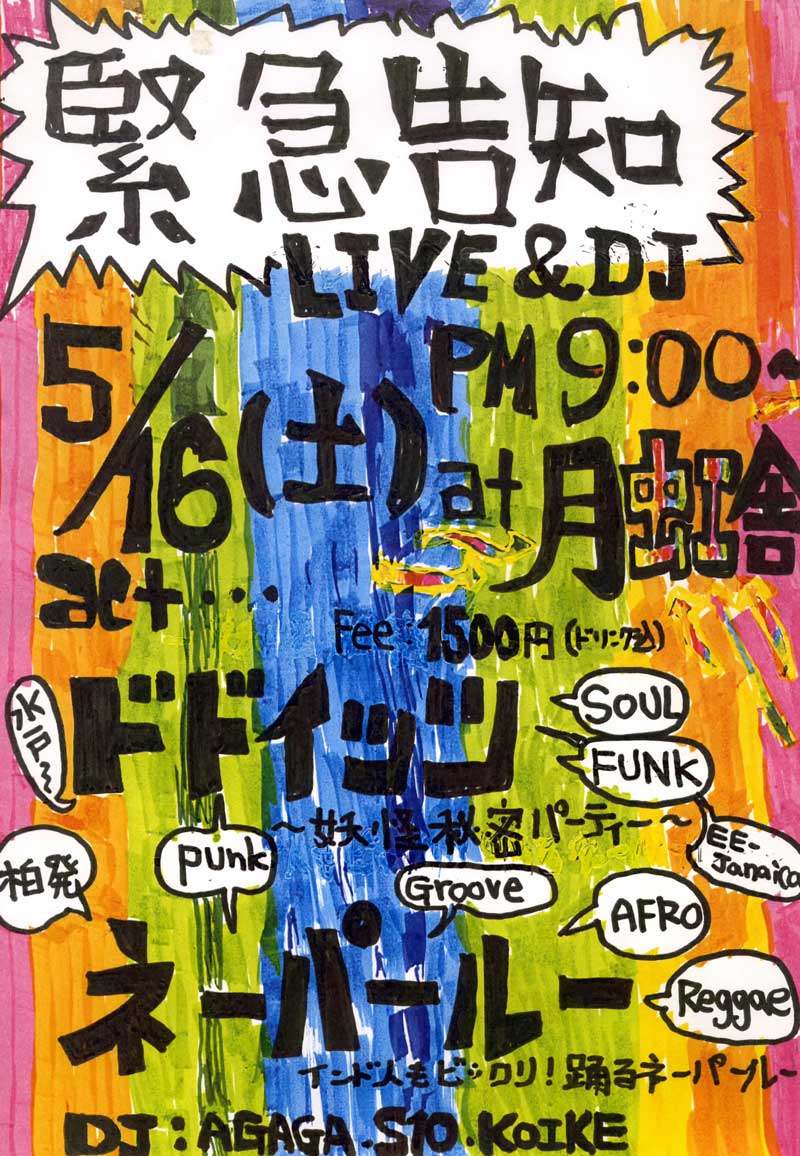 緊急告知
LIVE & DJ
5/16(土)
PM 9:00~
at 月虹舎
act...
Fee:1500円(ドリンク込)
水戸〜
ドドイッツ
SOUL
FUNK
〜妖怪秘密パーティー〜
EE-Jamaica
柏発
punk
Groove
AFRO
ネーパールー
Reggae
インド人もビックリ!踊るネーパールー
DJ:AGAGA.S10.KOIKE